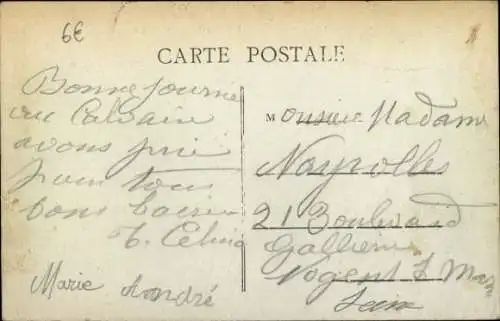 6€
CARTE POSTALE
Bonne journé
au Calvaire
avons prié
pour tous
bons baisers
T. Célina
Marie André
Monsieur Madame
21 Boulevard
Gallieni
Nogent S Marne
Seine